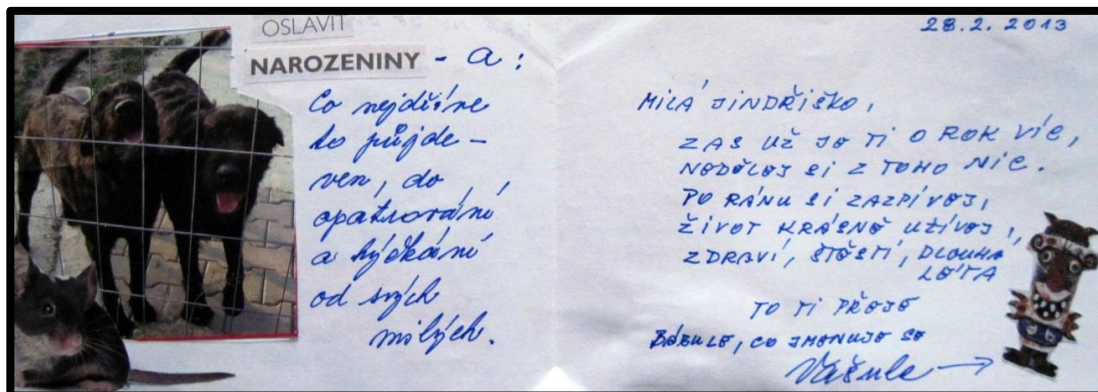 OSLAVIT
NAROZENINY - a:
Co nejdříve
to půjde -
ven, do
opatrování
a hýčkání
od svých
milých.
28.2. 2013
MILÁ JINDŘIŠKO,
ZAS UŽ JE TI O ROK VÍC,
NEDĚLEJ SI Z TOHO NIC.
PO RÁNU SI ZAZPÍVEJ,
ŽIVOT KRÁSNĚ UŽÍVEJ,
ZDRAVÍ, ŠTĚSTÍ, DLOUHÁ
LÉTA
TO TI PŘEJE
CO JMENUJE SE
Vašule →